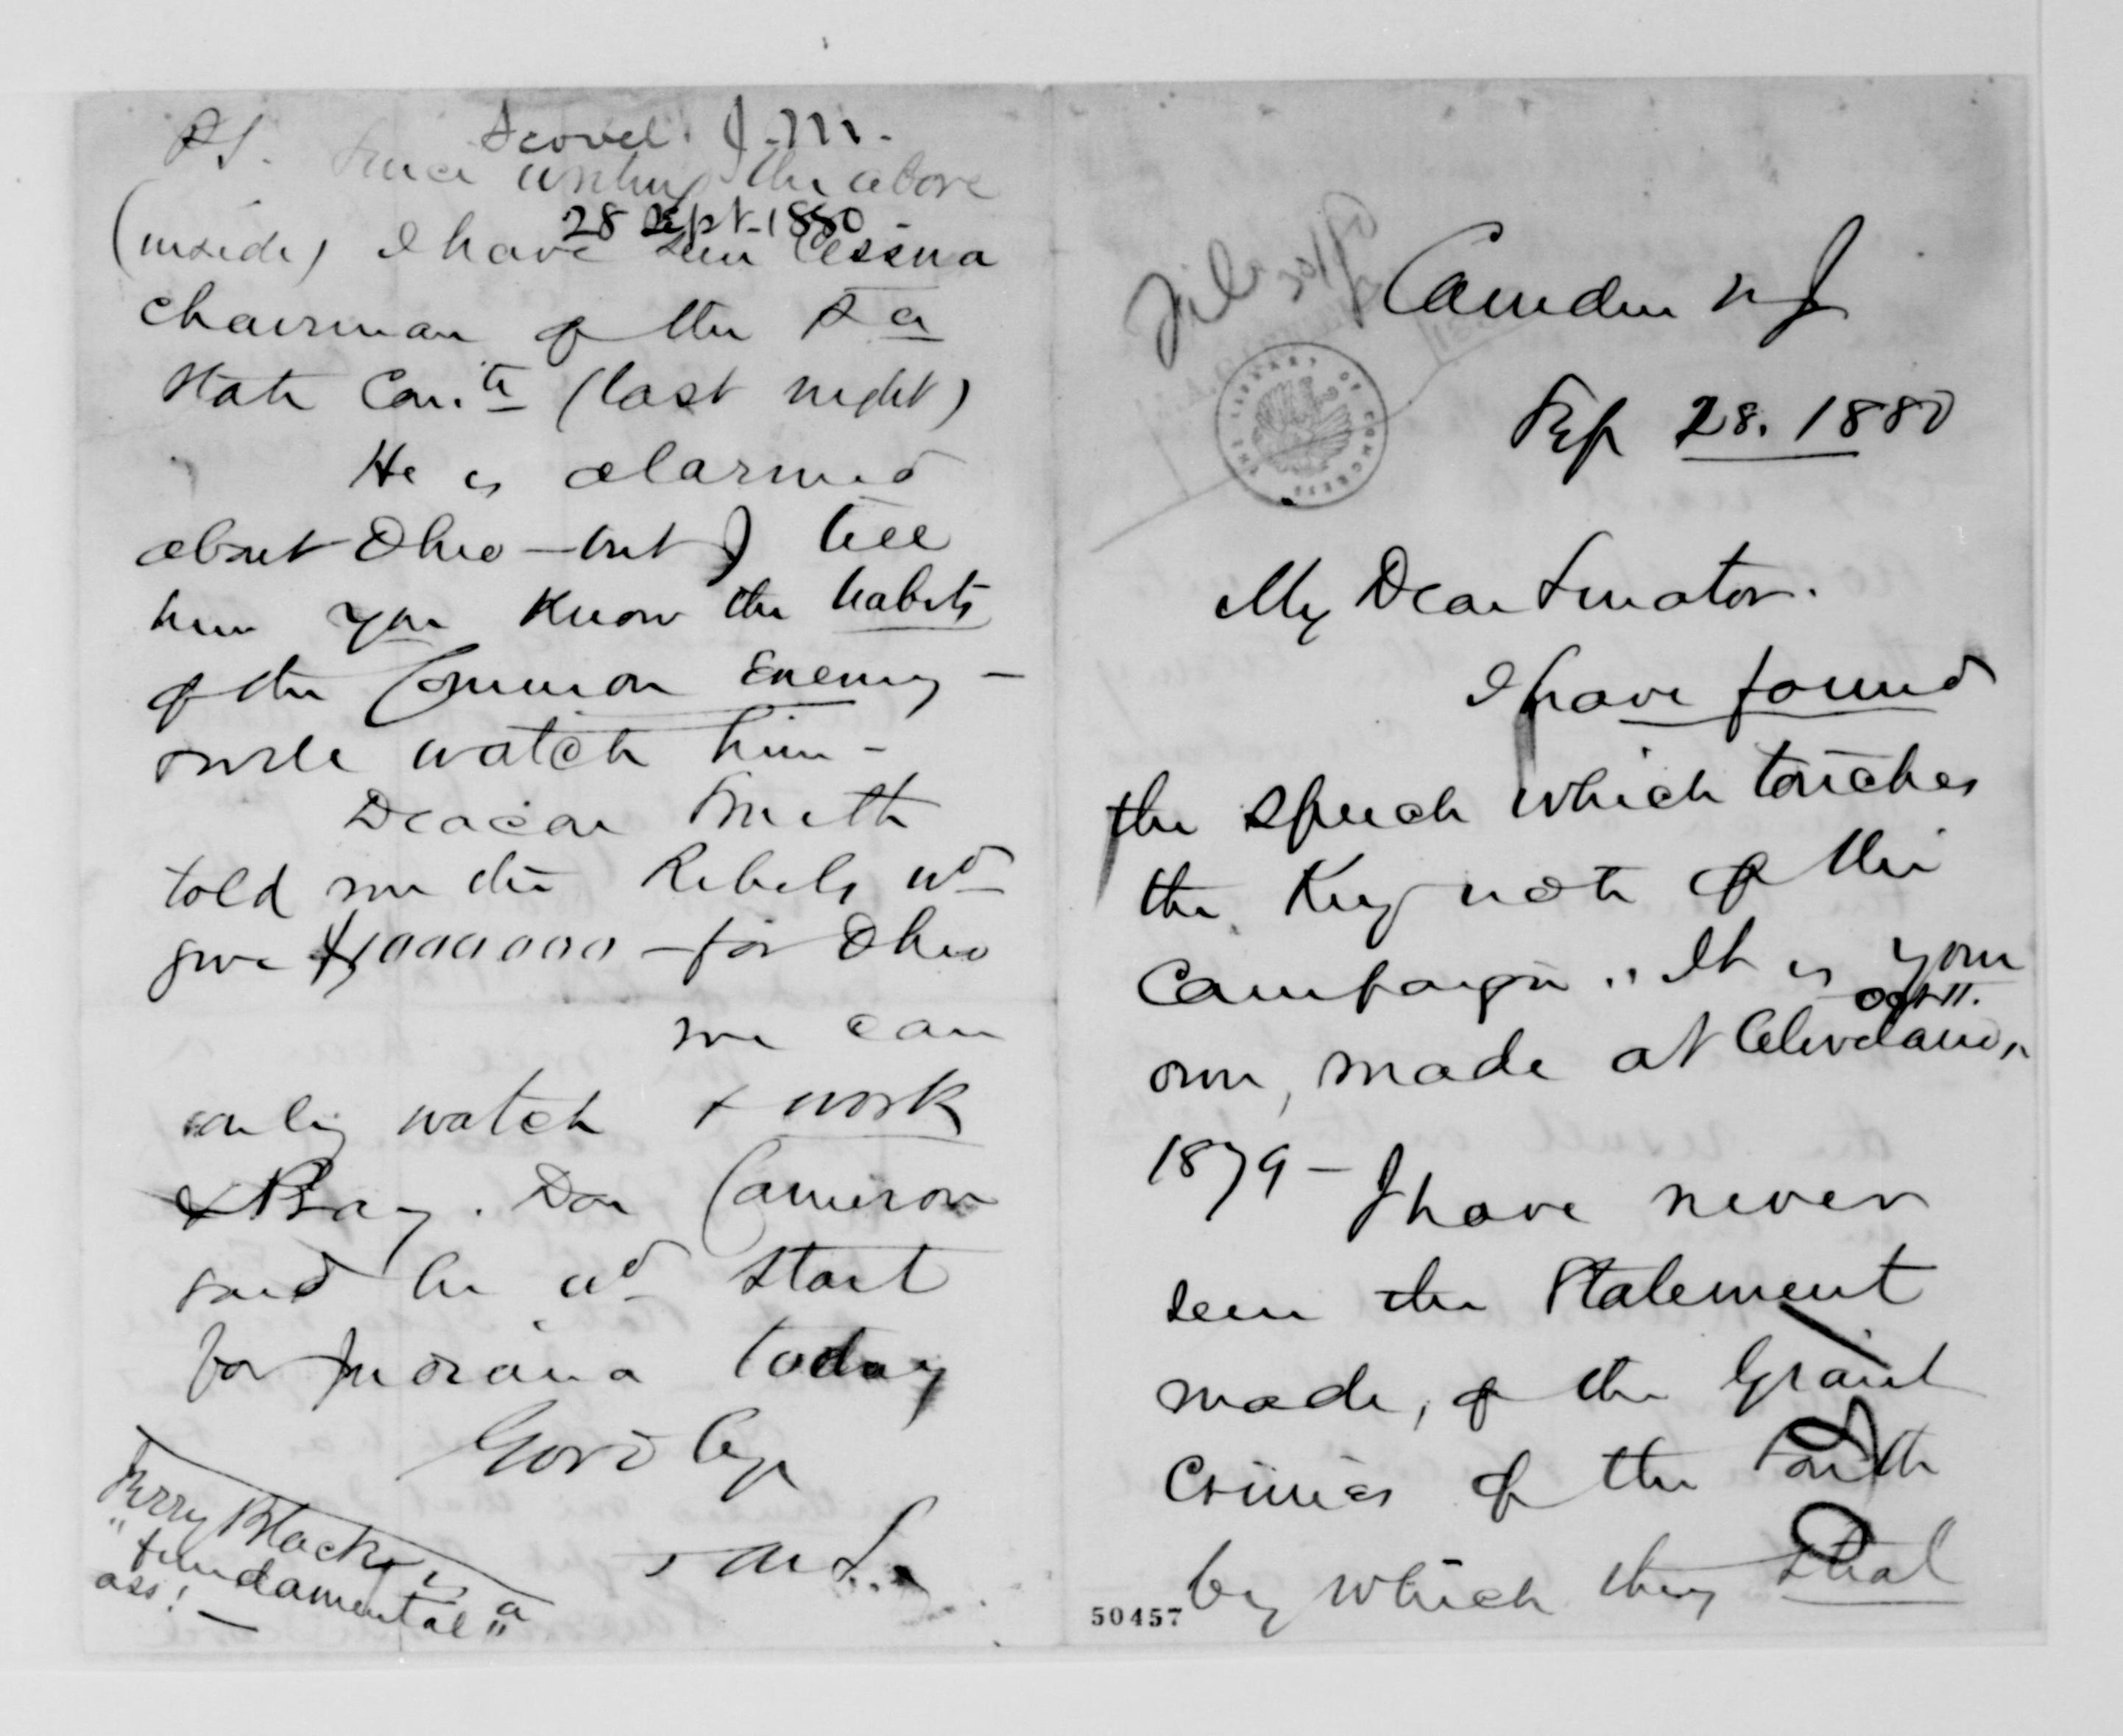 Camden N J
Sep 28. 1880
My Dear Senator.
I have found
the speech which touches
the Key note of the
Campaign. It is your
own, made at Cleveland,
Oct 11.
1879 - I have never
seen the statement
made, of the Giant
Crimes of the South
by which they steal
50457
File
THE LIBRARY OF CONGRESS
Scovel. J. M.
28 Sept. 1880
PS. Since writing the above
(inside) I have seen Cessna
Chairman of the Pa
State Comte (last night)
He is alarmed
about Ohio - but I tell
him you Know the habits
of the Common Enemy -
watch him -
Deacon Smith
told me the Rebels wd
give $1,000000 - for Ohio
we can
only watch & work
& Pray. Don Cameron
said he wd start
for Indiana today
Good bye
J M S.
Jerry Black is a
"fundamental"
ass! -